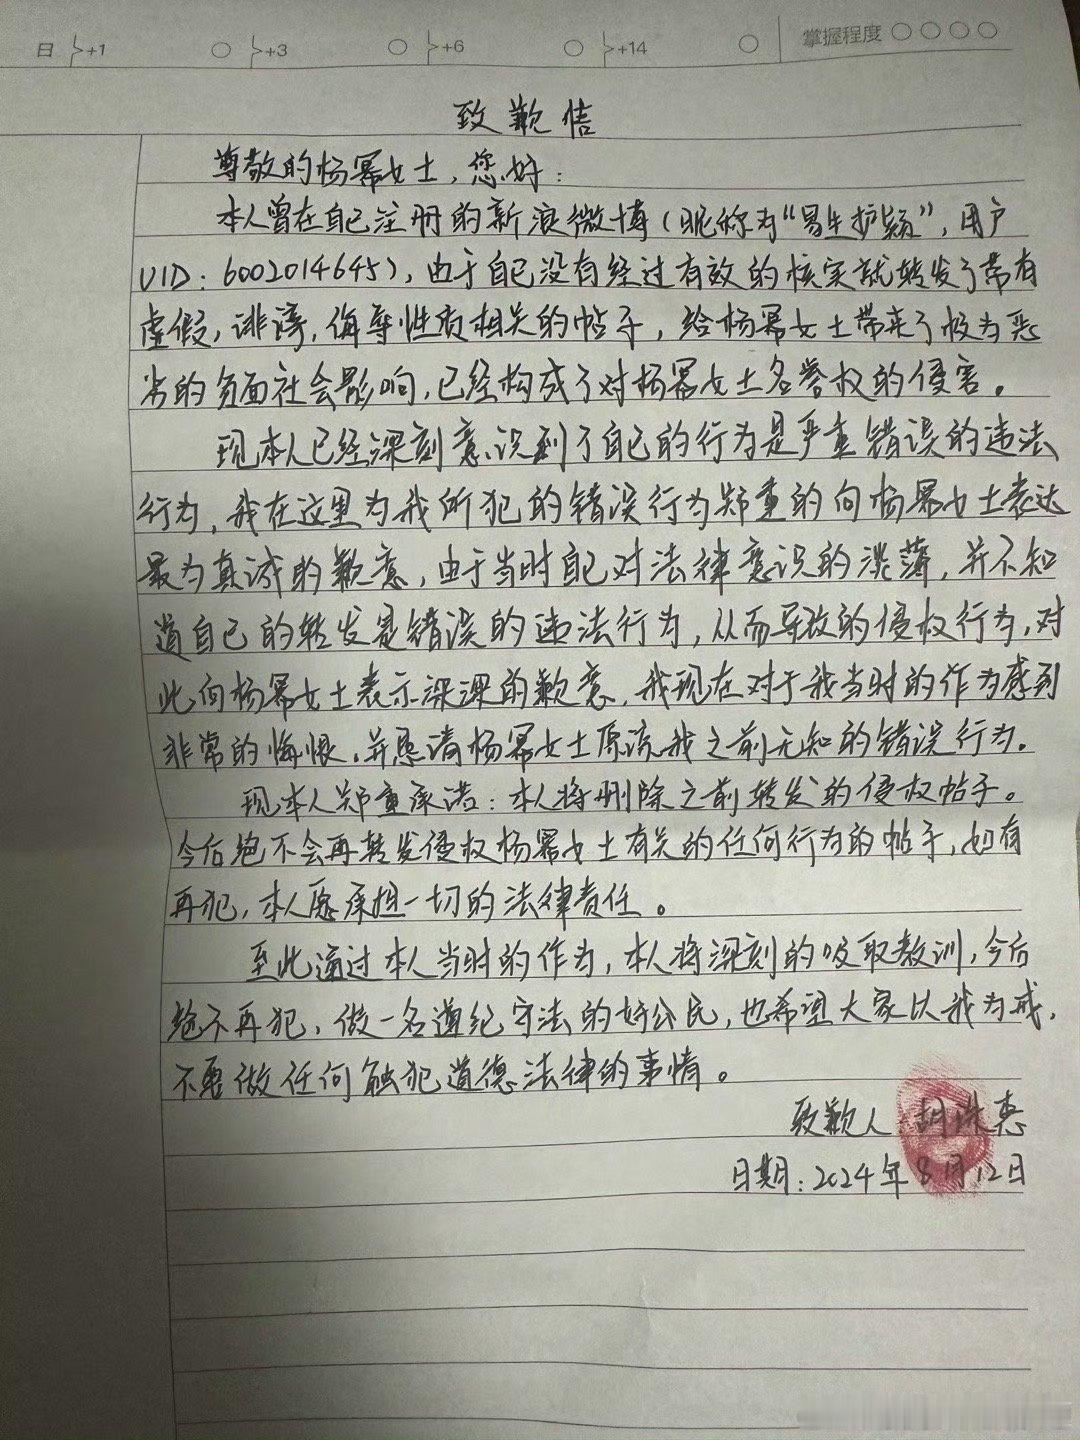 日 +1 +3 +6 +14 掌握程度
致歉信
尊敬的杨幂女士,您好:
本人曾在自己注册的新浪微博(昵称为“易生护颖”,用户
UID:6002014645),由于自己没有经过有效的核实就转发了带有
虚假,诽谤,侮辱性质相关的帖子,给杨幂女士带来了极为恶
劣的负面社会影响,已经构成了对杨幂女士名誉权的侵害。
现本人已经深刻意识到了自己的行为是严重错误的违法
行为,我在这里为我所犯的错误行为郑重的向杨幂女士表达
最为真诚的歉意,由于当时自己对法律意识的淡薄,并不知
道自己的转发是错误的违法行为,从而导致的侵权行为,对
此向杨幂女士表示深深的歉意,我现在对于我当时的作为感到
非常的悔恨,并恳请杨幂女士原谅我之前无知的错误行为。
现本人郑重承诺:本人将删除之前转发的侵权帖子。
今后绝不会再转发侵权杨幂女士有关的任何行为的帖子,如有
再犯,本人愿承担一切的法律责任。
至此通过本人当时的作为,本人将深刻的吸取教训,今后
绝不再犯,做一名遵纪守法的好公民,也希望大家以我为戒,
不要做任何触犯道德法律的事情。
致歉人 胡惠
日期:2024年8月12日